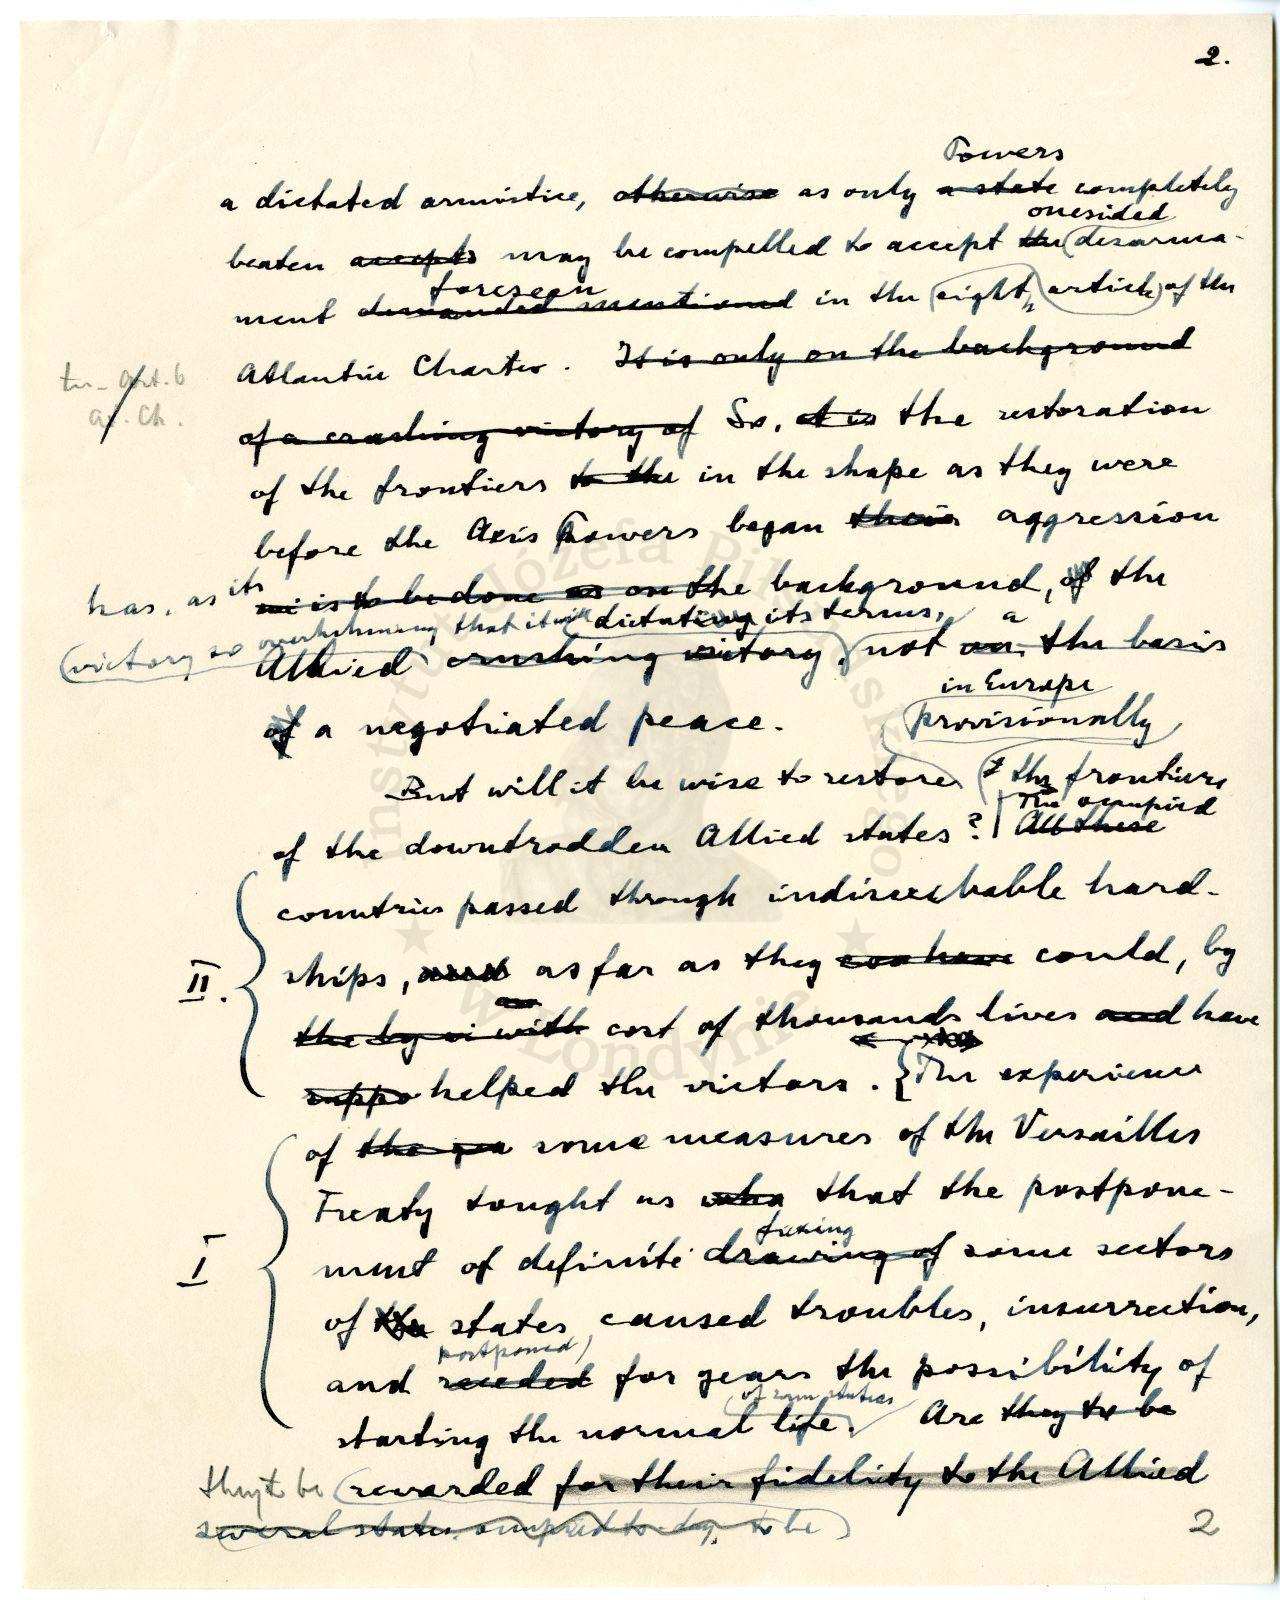 2.
Powers
a dictated armistice, otherwise as only a state completely
onesided
beaten accepts may be compelled to accept the desarma-
foreseen
ment demanded mentioned in the eight article of the
Atlantic Charter. It is only on the background
Art. 6
At. Ch.
of a crashing victory of So, it is the restoration
of the frontiers to the in the shape as they were
before the Axis Powers began their aggression
has, as its
is to be done as on the background, of the
victory so overwhelming that it will dictating its terms, a
Allied crushing victory, not on the basis
in Europe
of a negotiated peace. provisionally
But will it be wise to restore the frontiers
The occupied
of the downtrodden Allied states? All these
countries passed through indiscribable hard-
II.
ships, and as far as they could, by
the by with cost of thousands lives and have
suppo helped the victors. The experience
of the some measures of the Versailles
Treaty tought us that the postpone-
fixing
I
ment of definite drawing of some sectors
of the states caused troubles, insurrection,
postponed
and receded for years the possibility of
of some states
starting the normal life. Are they to be
they to be rewarded for their fidelity to the Allied
several states occupied to-day, to be
2
Instytut Józefa Piłsudskiego
w Londynie